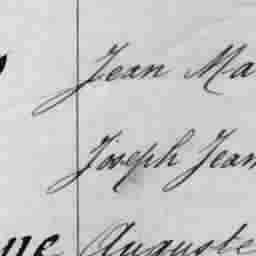 Jean Ma
Joseph Jean
Auguste